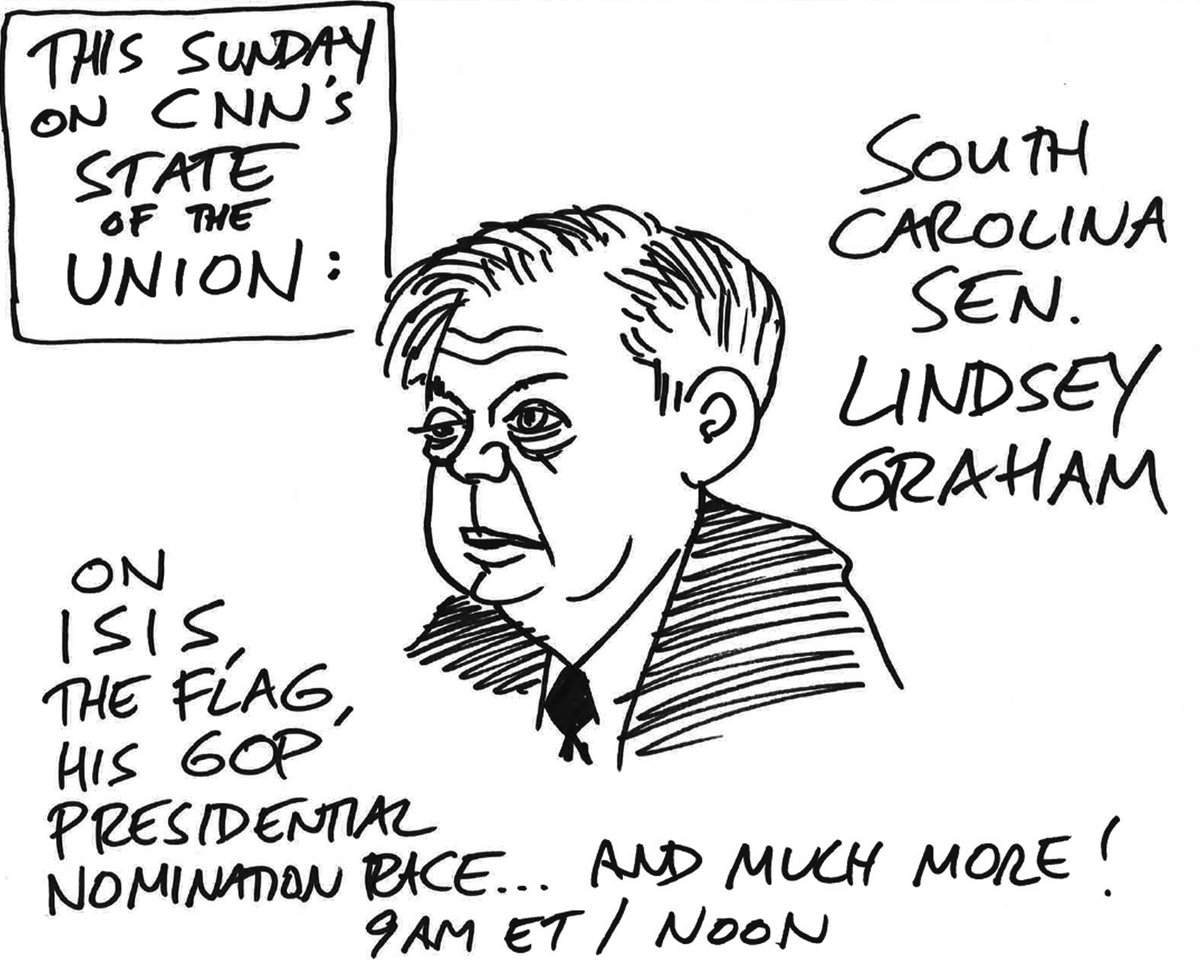 THIS SUNDAY
ON CNN's
STATE
OF THE
UNION:
SOUTH
CAROLINA
SEN.
LINDSEY
GRAHAM
ON
ISIS,
THE FLAG,
HIS GOP
PRESIDENTIAL
NOMINATION RACE... AND MUCH MORE!
9AM ET / NOON